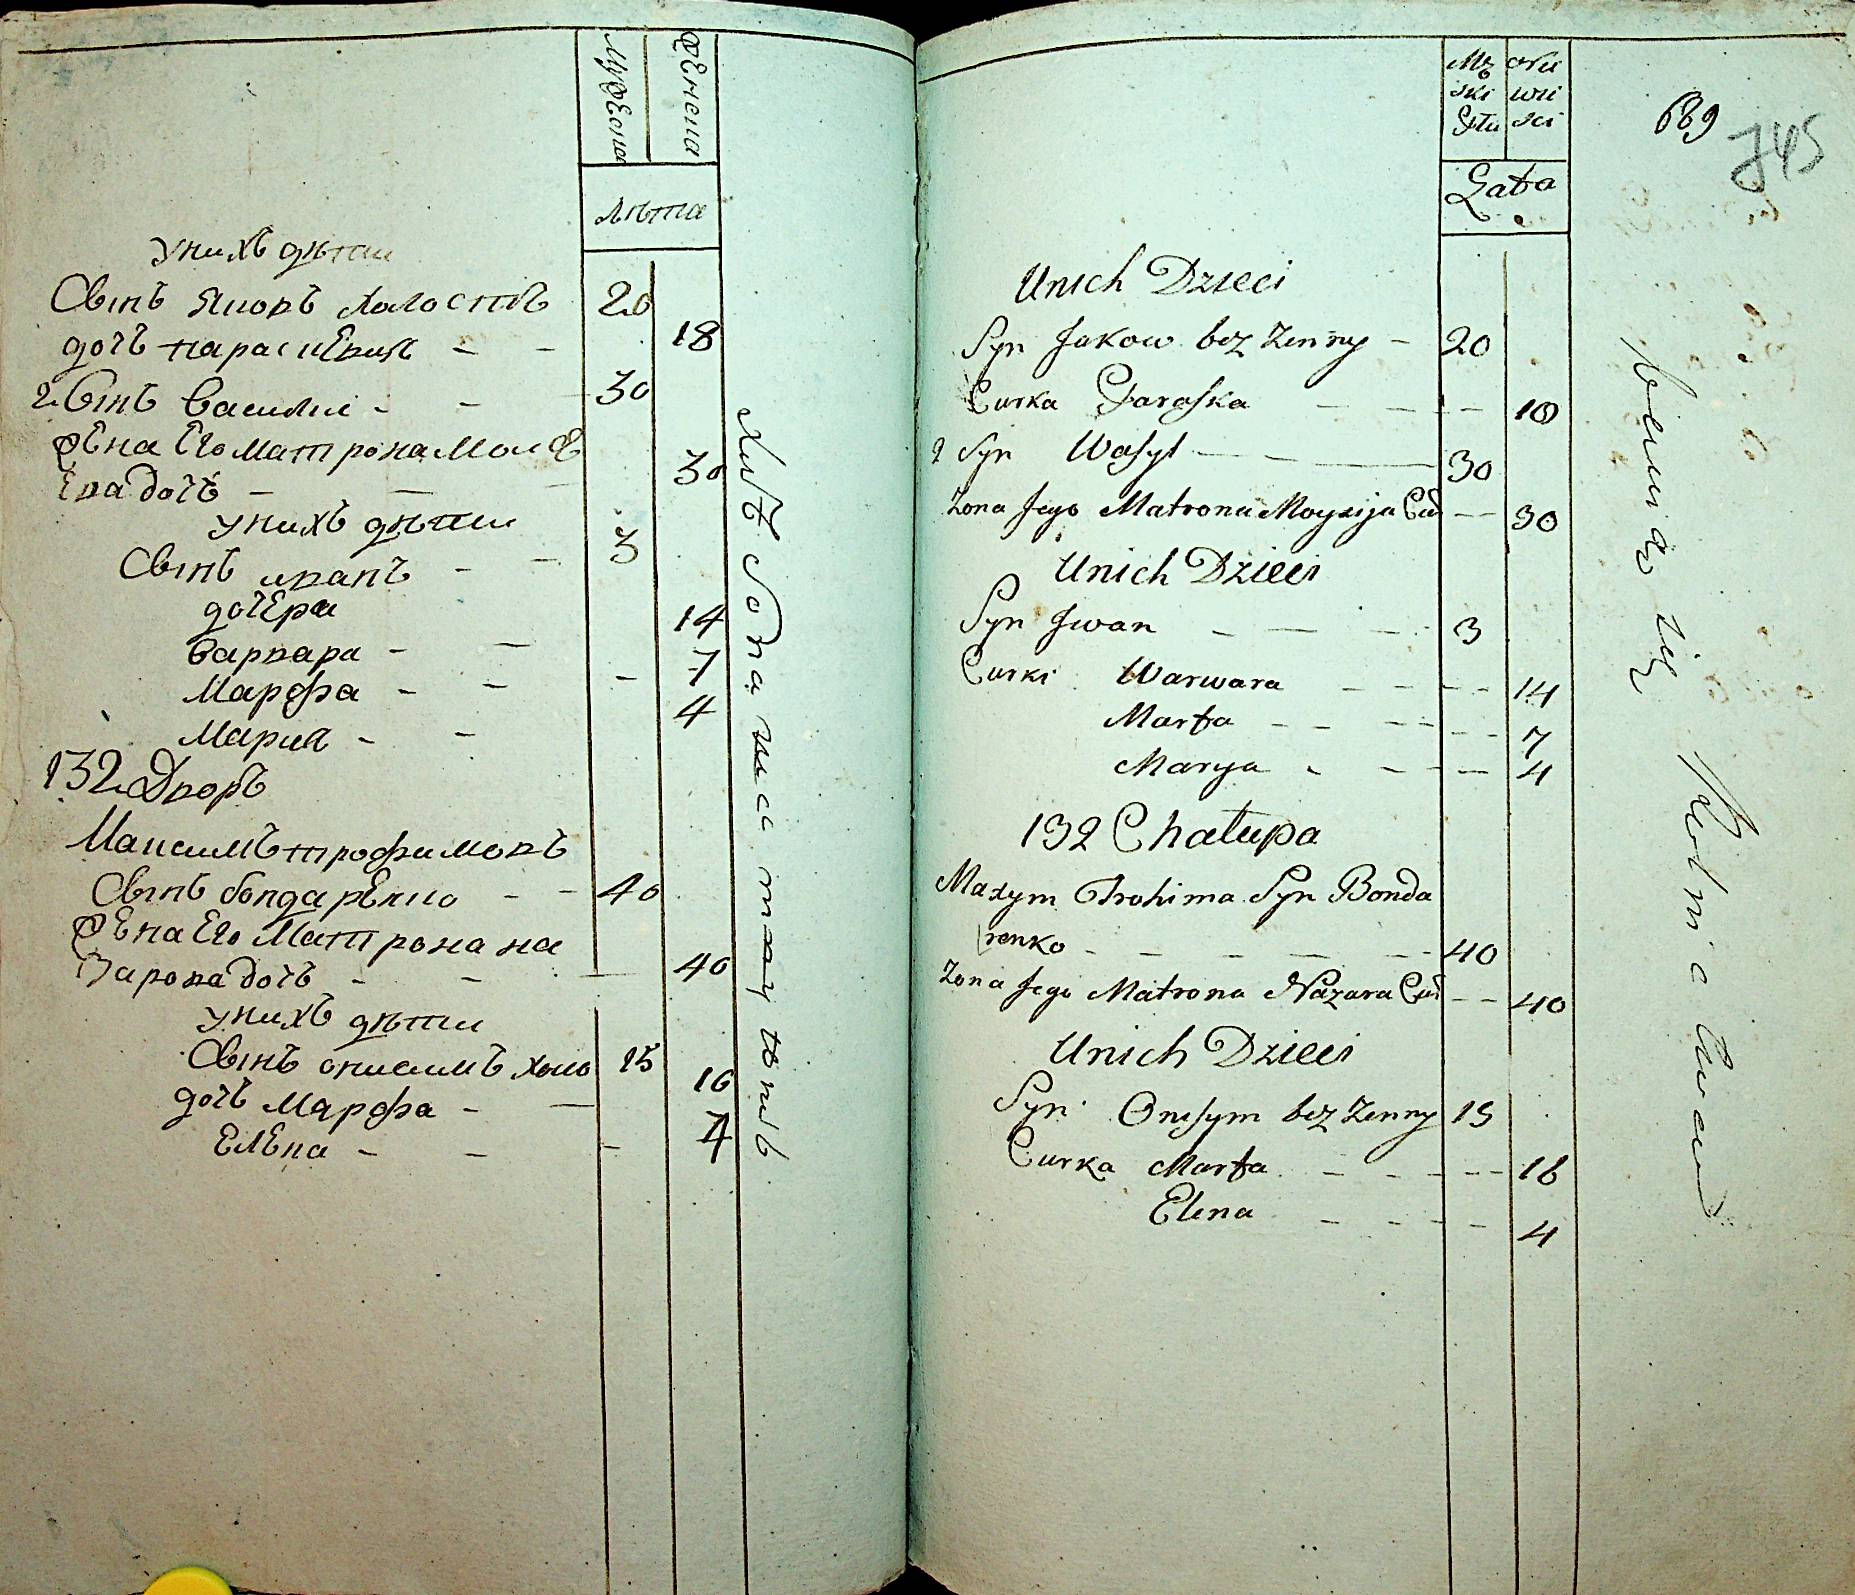 Мужеска
Женска
Лѣта
у нихъ дѣти
Сынъ Яковъ холостъ 20
дочь параскевия - - 18
2. Сынъ Василий - - 30
Жена Его Матрона Моисѣ
ева дочь - - 30
у нихъ дѣти
Сынъ иванъ - - 3
дочери
варвара - - 14
Марфа - - 7
Мария - - 4
132 Дворъ
Максимъ трофимовъ
Сынъ бондаренко - - 40
Жена Его Матрона на
Зарова дочь - - 40
у нихъ дѣти
Сынъ онисимъ холо 15
дочь Марфа - - 16
Елена - - 4
Męz
ski
Płci
Nie
wie
sci
Lata
689
745
Unich Dzieci
Syn Jakow bez Zenny - 20
Curka Paraska - - 18
2 Syn Wasyl - - 30
Zona Jego Matrona Moysija Cur - - 30
Unich Dzieci
Syn Jwan - - - 3
Curki Warwara - - - - 14
Marta - - - - 7
Marya - - - - 4
132 Chałupa
Maxym Trohima Syn Bonda
renko - - - - - 40
Zona Jego Matrona Nazara Cur - - 40
Unich Dzieci
Syn Onisym bez Zenny 15
Curka Marta - - - - 16
Elena - - - - 4